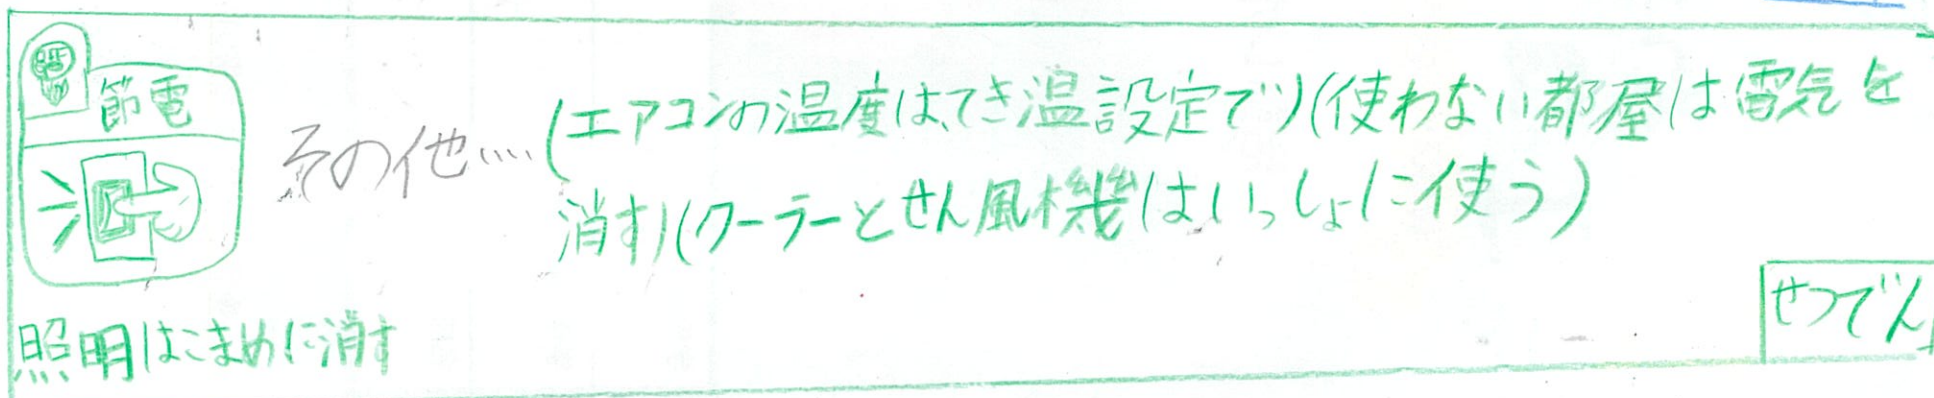 節電
その他…(エアコンの温度は、てき温設定で)(使わない都屋は電気を
消す)(クーラーとせん風機はいっしょに使う)
せつでん
照明はこまめに消す